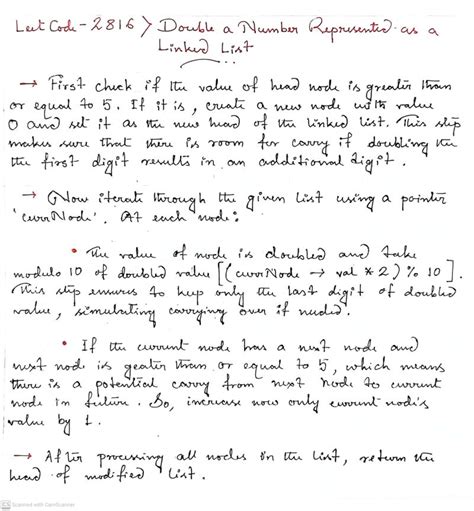 Leet Code - 2816 > Double a Number Represented as a
Linked List
→ First check if the value of head node is greater than
or equal to 5. If it is, create a new node with value
0 and set it as the new head of the linked list. This step
makes sure that there is room for carry if doubling the
the first digit results in an additional digit.
→ Now iterate through the given list using a pointer
'currNode'. At each node:
• The value of node is doubled and take
modulo 10 of doubled value [(currNode → val * 2) % 10].
This step ensures to keep only the last digit of doubled
value, simulating carrying over if needed.
• If the current node has a next node and
next node is greater than or equal to 5, which means
there is a potential carry from next node to current
node in future. So, increase now only current node's
value by 1.
→ After processing all nodes in the list, return the
head of modified list.
CS Scanned with CamScanner